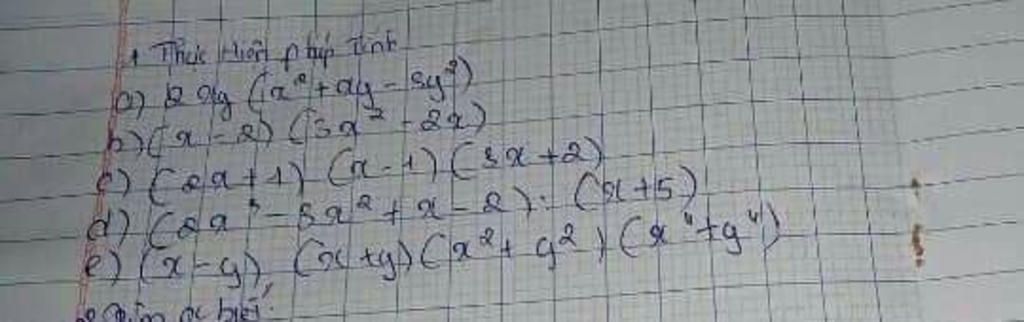 1 Thực hiện phép tính
a) 2xy (x² + xy - 3y²)
b) (x - 2) (3x² - 2x)
c) (2x + 1) (x - 1) (3x + 2)
d) (2x³ - 3x² + x - 2) . (x + 5)
e) (x - y) (x + y) (x² + y²) (x⁴ + y⁴)